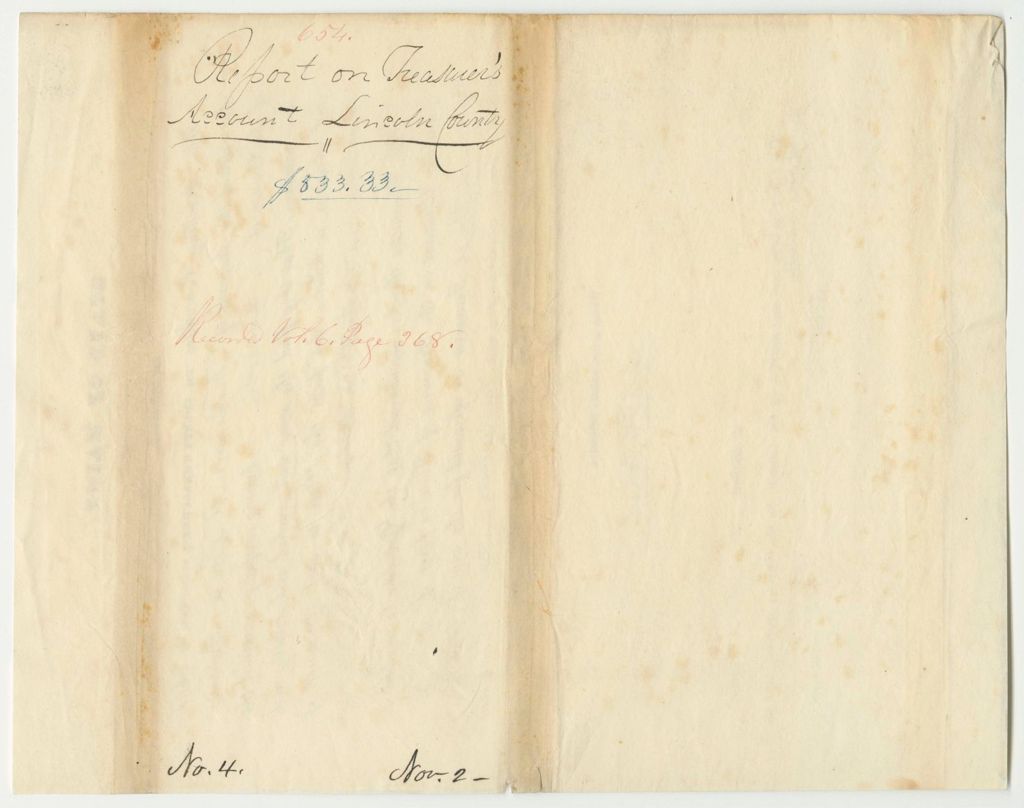 654.
Report on Treasurer's
Account Lincoln County
"
$533.33.
Recorded Vol. 6. Page 368.
No. 4. Nov. 2 -